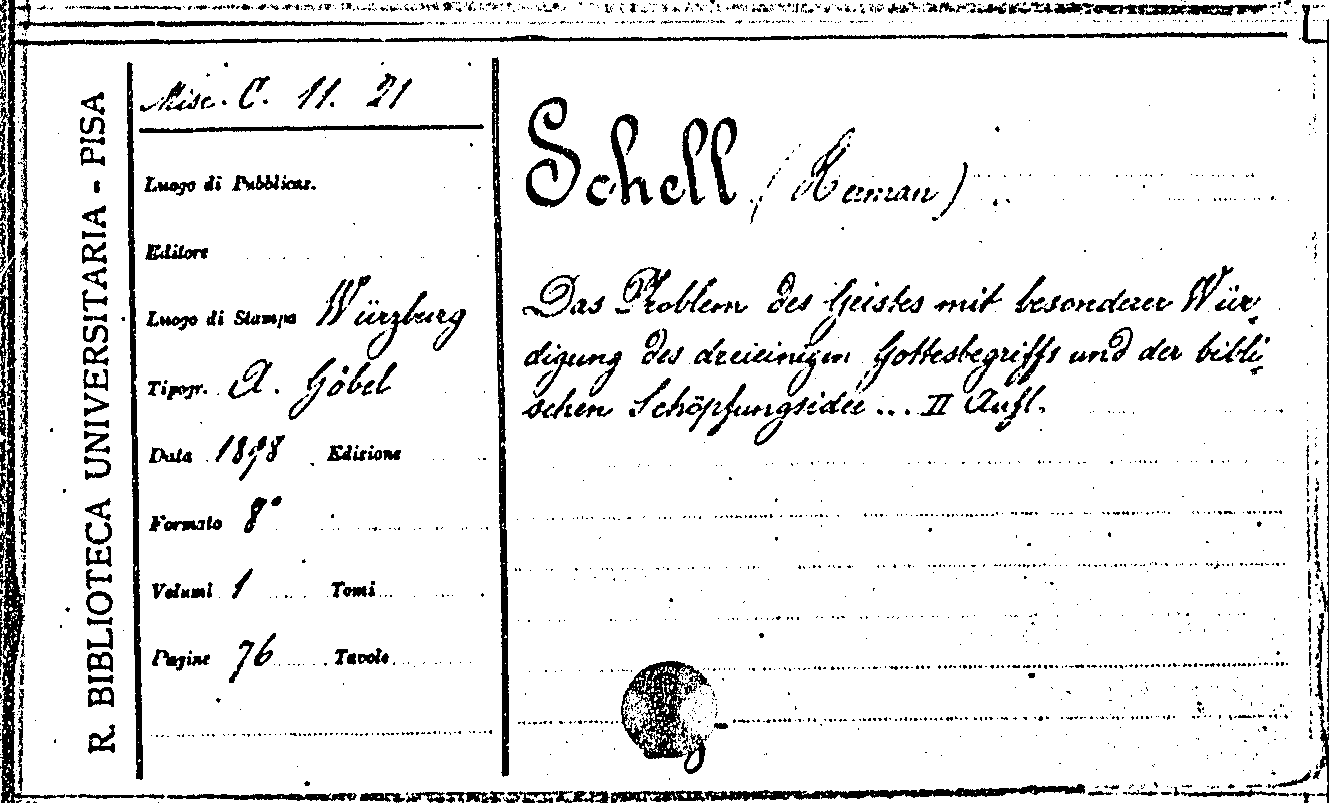 R. BIBLIOTECA UNIVERSITARIA - PISA
Misc. C. 11. 21
Luogo di Pubblicaz.
Editore
Luogo di Stampa Würzburg
Tipogr. A. Göbel
Data 1898 Edizione
Formato 8°
Volumi 1 Tomi
Pagine 76 Tavole
Schell (Herman)
Das Problem des Geistes mit besonderer Wür-
digung des dreieinigen Gottesbegriffs und der bibli-
schen Schöpfungsidee... II Aufl.